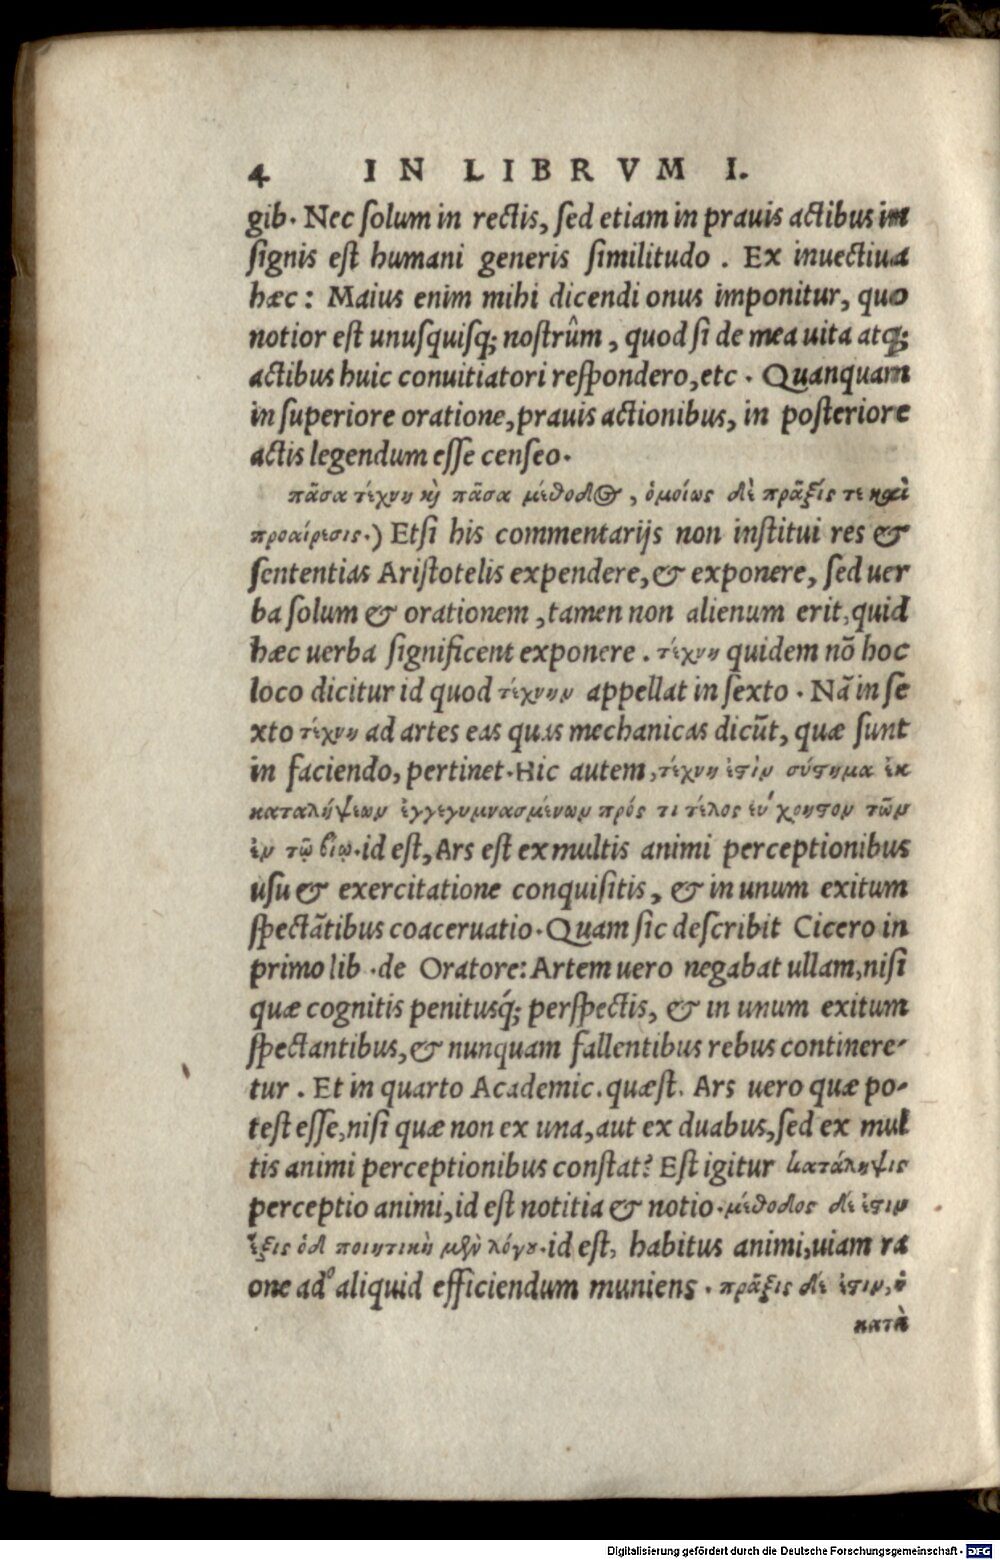 4 IN LIBRVM I.
gib. Nec ſolum in rectis, ſed etiam in prauis actibus in
ſignis eſt humani generis ſimilitudo . Ex inuectiua
hæc : Maius enim mihi dicendi onus imponitur, quo
notior eſt unuſquiſq; noſtrûm , quod ſi de mea uita atq;
actibus huic conuitiatori reſpondero, etc . Quanquam
in ſuperiore oratione, prauis actionibus, in poſteriore
actis legendum eſſe cenſeo.
πᾶσα τέχνη κỳ πᾶσα μέθοδος , ὁμοίως δὲ πρᾶξίς τε καὶ
προαίρεσις.) Etſi his commentarijs non inſtitui res &
ſententias Ariſtotelis expendere, & exponere, ſed uer
ba ſolum & orationem , tamen non alienum erit, quid
hæc uerba ſignificent exponere . τέχνη quidem nō hoc
loco dicitur id quod τέχνην appellat in ſexto . Nā in ſe
xto τέχνη ad artes eas quas mechanicas dicūt, quæ ſunt
in faciendo, pertinet. Hic autem, τέχνη ἐϛὶν σύϛημα ἐκ
καταλήψεων ἐγγεγυμνασμένων πρός τι τέλος εὔχρηϛον τῶν
ἐν τῷ βίῳ. id eſt, Ars eſt ex multis animi perceptionibus
uſu & exercitatione conquiſitis, & in unum exitum
ſpectātibus coaceruatio. Quam ſic deſcribit Cicero in
primo lib . de Oratore: Artem uero negabat ullam, niſi
quæ cognitis penitusq́; perſpectis, & in unum exitum
ſpectantibus, & nunquam fallentibus rebus continere-
tur . Et in quarto Academic. quæſt. Ars uero quæ po-
teſt eſſe, niſi quæ non ex una, aut ex duabus, ſed ex mul
tis animi perceptionibus conſtat? Eſt igitur κατάληψις
perceptio animi, id eſt notitia & notio. μέθοδος δέ ἐϛιν
ἕξις ὁδοποιητικὴ μετὰ λόγου. id eſt, habitus animi, uiam ra
one ad aliquid efficiendum muniens . πρᾶξις δέ ἐϛιν, ἡ
κατὰ
Digitalisierung gefördert durch die Deutsche Forschungsgemeinschaft - DFG